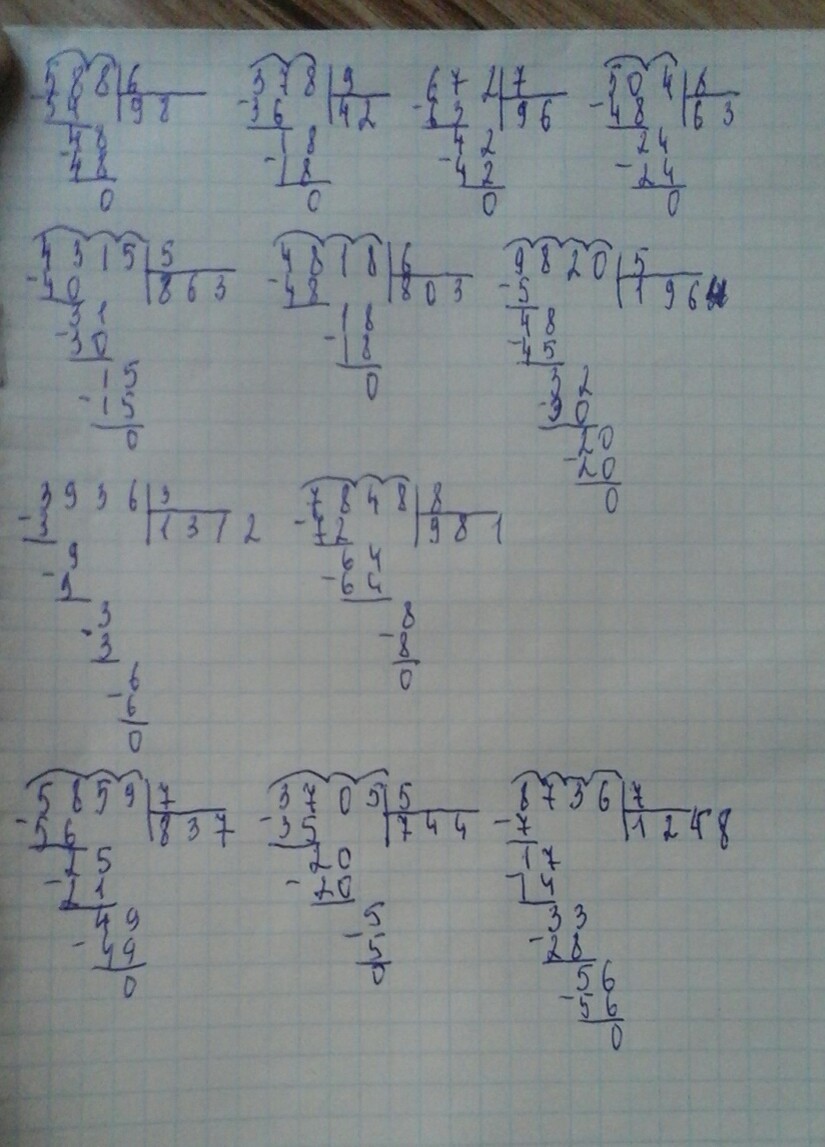 588 | 6 378 | 9 672 | 7 504 | 8
-54 98 -36 42 -63 96 -48 63
48 18 42 24
-48 -18 -42 -24
0 0 0 0
4315 | 5 4818 | 6 9820 | 5
-40 863 -48 803 -5 196
31 18 48
-30 -18 -45
15 0 32
-15 -30
0 20
-20
0
3936 | 3 7848 | 8
-3 1312 -72 981
9 64
-9 -64
3 8
-3 -8
6 0
-6
0
5859 | 7 3705 | 5 8736 | 7
-56 837 -35 744 -7 1248
25 20 17
-21 -20 -14
49 5 33
-49 -5 -28
0 0 56
-56
0